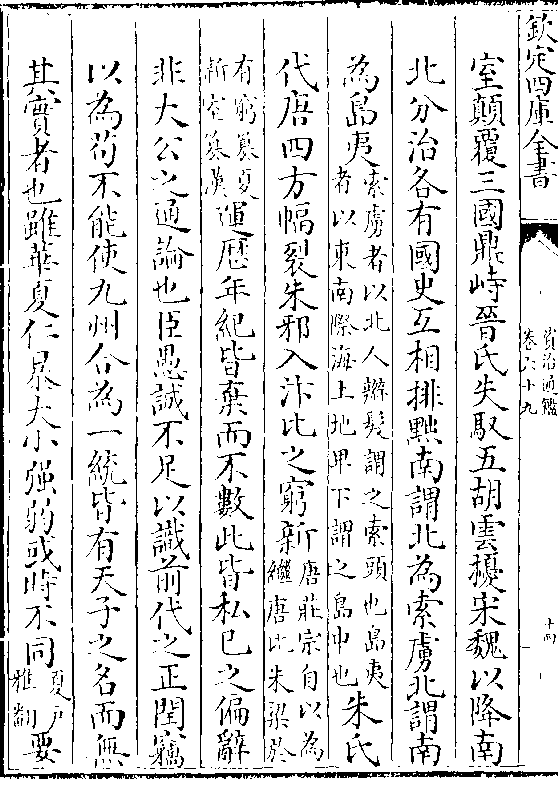 欽定四庫全書
資治通鑑
卷六十九
十四
室顛覆三國鼎峙晉氏失馭五胡雲擾宋魏以降南
北分治各有國史互相排黜南謂北為索虜北謂南
為島夷索虜者以北人辮髮謂之索頭也島夷者以東南際海土地卑下謂之島中也朱氏
代唐四方幅裂朱邪入汴比之窮新唐莊宗自以為繼唐比朱梁於
有窮簒夏新室簒漢運歴年紀皆棄而不數此皆私已之偏辭
非大公之通論也臣愚誠不足以識前代之正閏竊
以為苟不能使九州合為一統皆有天子之名而無
其實者也雖華夏仁暴大小强弱或時不同夏戸雅翻要